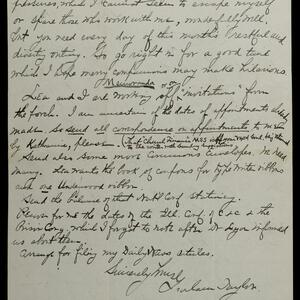 pressures, which I cannot seem to escape myself
or spare those who work with me, wonderfully well.
But you need every day of this month's restful and
diverting outing. So go right in for a good time
which I hope merry companions may make hilarious.
Memoranda
Lea and I are working off "invitations" from
the porch. I am uncertain of the dates of appointments already
made. So send all correspondence on appointments to me soon
by Katharine, please.
Send also some more Commons envelopes. We need
many. Lea wants the book of coupons for typewriter ribbons
and one Underwood ribbon.
Send the balance of that Natl Conf stationery.
Please for me the dates of the Ill. Conf of C & C & the
Prison Cong, which I forgot to note after Dr informed
us about them.
Arrange for filing my Daily News articles.
Sincerely Yours,
Graham Taylor